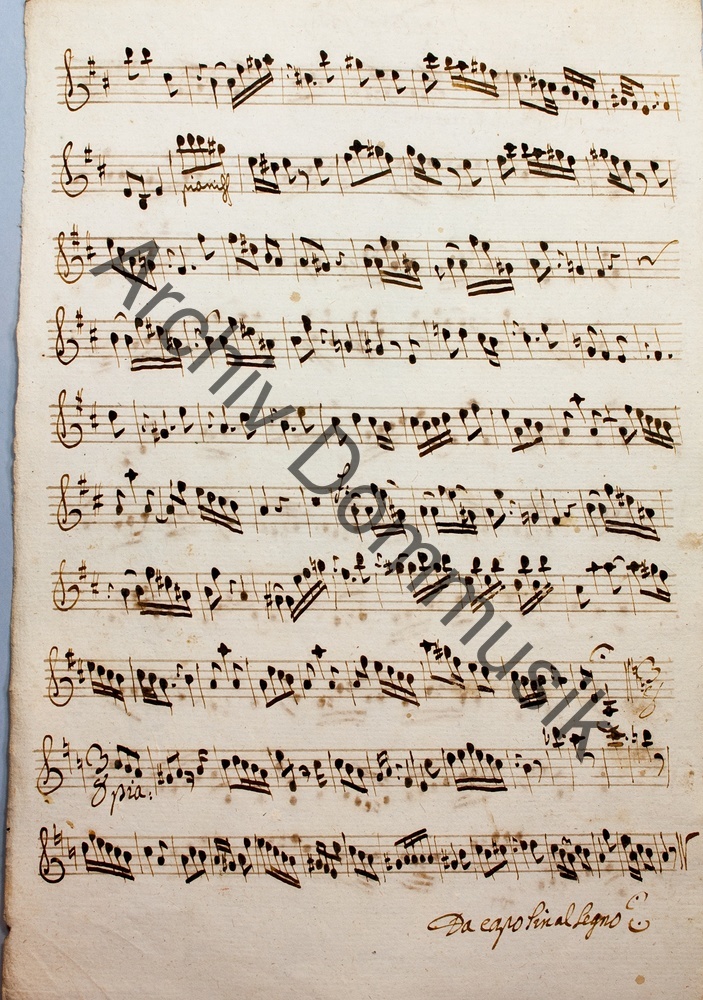 pianiss
Archiv Dommusik
3
8
3
8 pia:
Da capo Sin al Segno